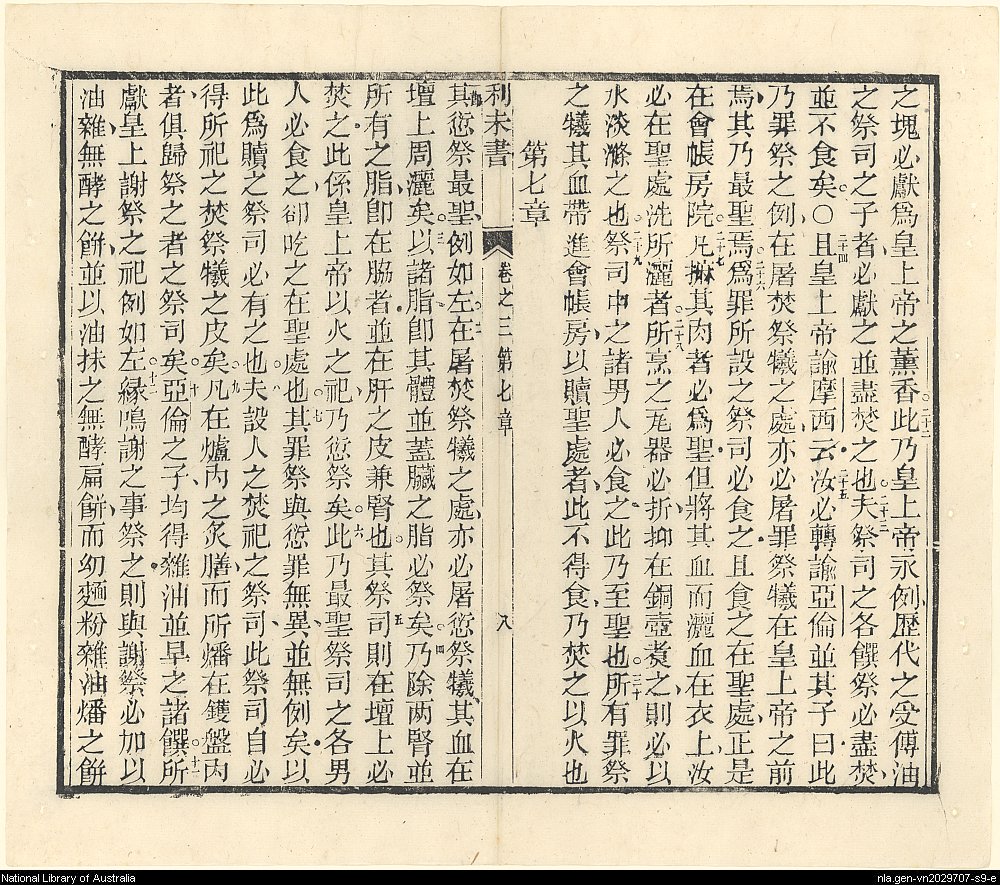 之塊必獻爲皇上帝之薰香此乃皇上帝永例歷代之受傅油
之祭司之子者必獻之並盡焚之也夫祭司之各饌祭必盡焚
並不食矣○且皇上帝諭摩西云汝必轉諭亞倫並其子曰此
乃罪祭之例在屠焚祭犧之處亦必屠罪祭犧在皇上帝之前
焉其乃最聖焉爲罪所設之祭司必食之且食之在聖處正是
在會帳房院凡擵其肉者必爲聖但將其血而灑血在衣上汝
必在聖處洗所灑者所烹之瓦器必折抑在銅壺煑之則必以
水淡滌之也祭司中之諸男人必食之此乃至聖也所有罪祭
之犧其血帶進會帳房以贖聖處者此不得食乃焚之以火也
第七章
利未書
卷之三第七章
八
其愆祭最聖例如左在屠焚祭犧之處亦必屠愆祭犧其血在
壇上周灑矣以諸脂卽其體並蓋臟之脂必祭矣乃除两腎並
所有之脂卽在脇者並在肝之皮兼腎也其祭司則在壇上必
焚之此係皇上帝以火之祀乃愆祭矣此乃最聖祭司之各男
人必食之卻吃之在聖處也其罪祭與愆罪無異並無例矣以
此爲贖之祭司必有之也夫設人之焚祀之祭司此祭司自必
得所祀之焚祭犧之皮矣凡在爐內之炙膳而所燔在鑊盤內
者俱歸祭之者之祭司矣亞倫之子均得雜油並旱之諸饌所
獻皇上謝祭之祀例如左緣鳴謝之事祭之則與謝祭必加以
油雜無酵之餅並以油抹之無酵扁餅而幼麵粉雜油燔之餅
National Library of Australia
nla.gen-vn2029707-s9-e